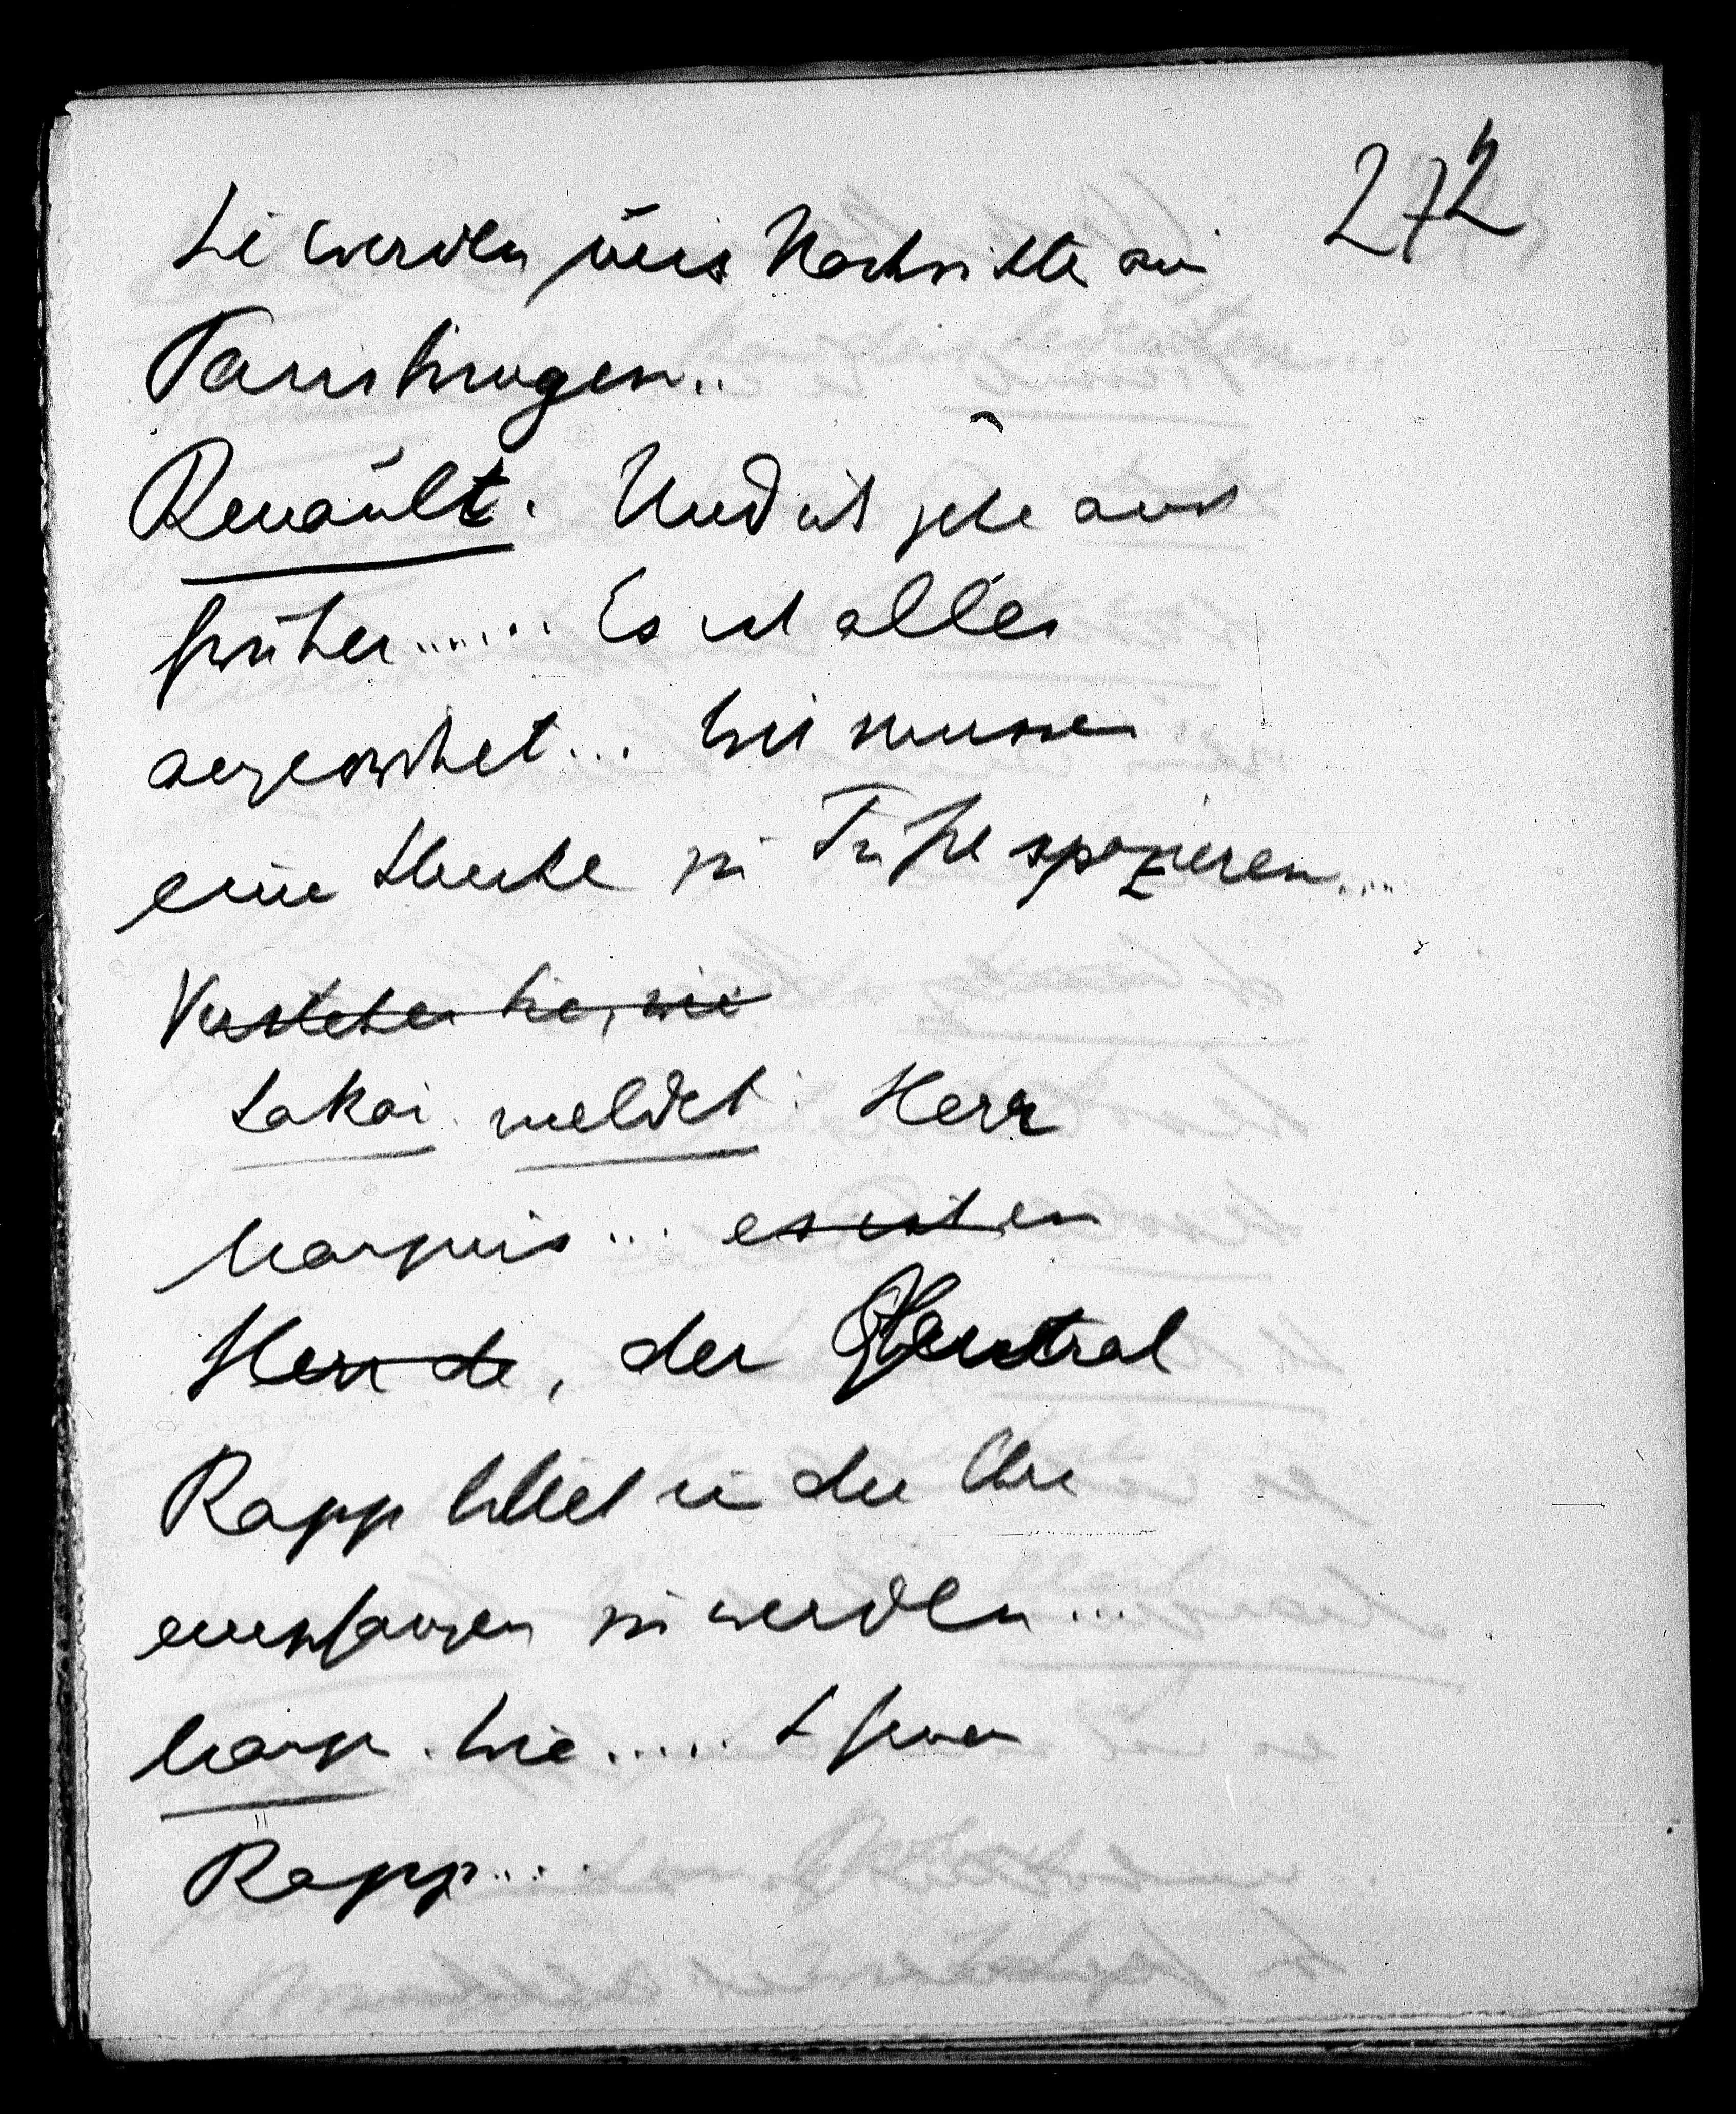 272
Sie werden uns Nachrichten aus
Paris bringen..
Renault. Und ich gehe auch
früher...... Es ist alles
angeordnet... Wir müssen
eine Stunde zu Fuße spazieren....
Verstehen Sie, wie
Lakai meldet: Herr
Marquis... es ist ein
Herr de, der General
Rapp bittet um die Ehre
empfangen zu werden...
Marq. Wie.....
Rapp....